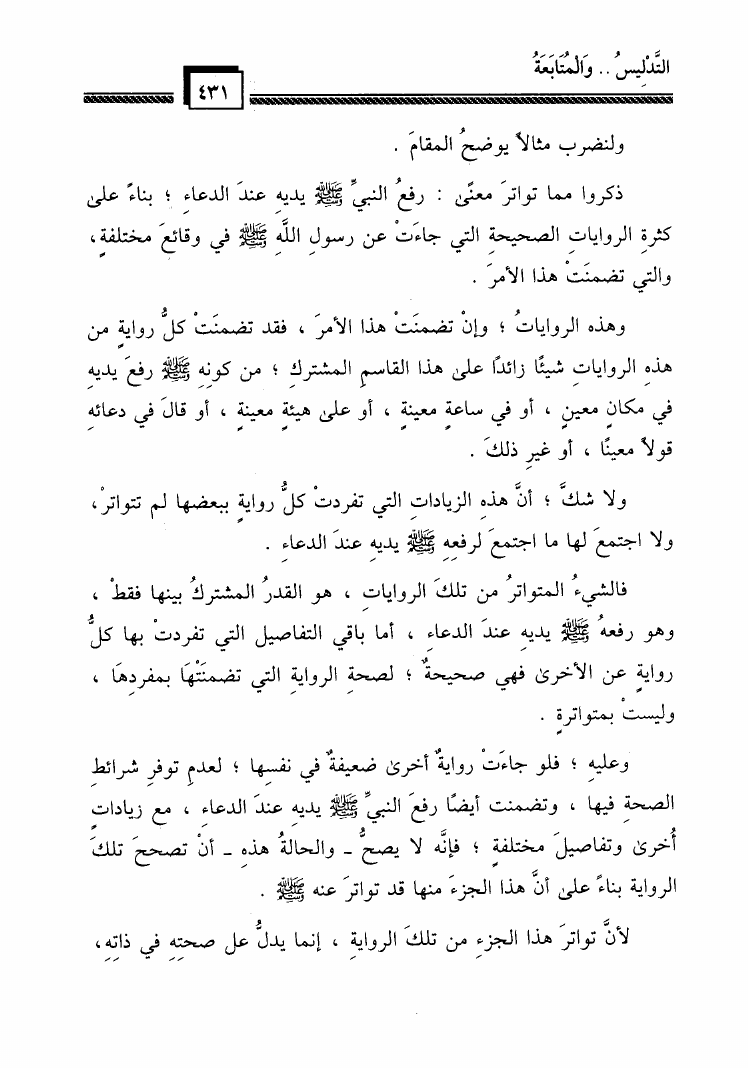 التَّدْلِيسُ .. وَالْمُتَابَعَةُ
٤٣١
ولنضرب مثالاً يوضحُ المقامَ .
ذكروا مما تواترَ معنًى : رفعُ النبيِّ ﷺ يديهِ عندَ الدعاءِ ؛ بناءً علىٰ
كثرةِ الرواياتِ الصحيحةِ التي جاءَتْ عن رسولِ اللَّهِ ﷺ في وقائعَ مختلفةٍ،
والتي تضمنَتْ هذا الأمرَ .
وهذه الرواياتُ ؛ وإنْ تضمنَتْ هذا الأمرَ ، فقد تضمنَتْ كلُّ روايةٍ من
هذهِ الرواياتِ شيئًا زائدًا علىٰ هذا القاسمِ المشتركِ ؛ من كونِهِ ﷺ رفعَ يديهِ
في مكانٍ معينٍ ، أو في ساعةٍ معينةٍ ، أو علىٰ هيئةٍ معينةٍ ، أو قالَ في دعائهِ
قولاً معينًا ، أو غيرِ ذلكَ .
ولا شكَّ ؛ أنَّ هذهِ الزياداتِ التي تفردتْ كلُّ روايةٍ ببعضها لم تتواترْ،
ولا اجتمعَ لها ما اجتمعَ لرفعِهِ ﷺ يديهِ عندَ الدعاءِ .
فالشيءُ المتواترُ من تلكَ الرواياتِ ، هو القدرُ المشتركُ بينها فقطْ ،
وهو رفعهُ ﷺ يديهِ عندَ الدعاءِ ، أما باقي التفاصيل التي تفردتْ بها كلُّ
روايةٍ عن الأخرىٰ فهي صحيحةٌ ؛ لصحةِ الروايةِ التي تضمنَتْهَا بمفردِهَا ،
وليستْ بمتواترةٍ .
وعليهِ ؛ فلو جاءَتْ روايةٌ أخرىٰ ضعيفةٌ في نفسِها ؛ لعدمِ توفرِ شرائطِ
الصحةِ فيها ، وتضمنت أيضًا رفعَ النبيِّ ﷺ يديهِ عندَ الدعاءِ ، مع زياداتٍ
أُخرىٰ وتفاصيلَ مختلفةٍ ؛ فإنَّه لا يصحُّ ـ والحالةُ هذهِ ـ أنْ تصححَ تلكَ
الرواية بناءً علىٰ أنَّ هذا الجزءَ منها قد تواترَ عنه ﷺ .
لأنَّ تواترَ هذا الجزءِ من تلكَ الروايةِ ، إنما يدلُّ عل صحتِهِ في ذاتِهِ،